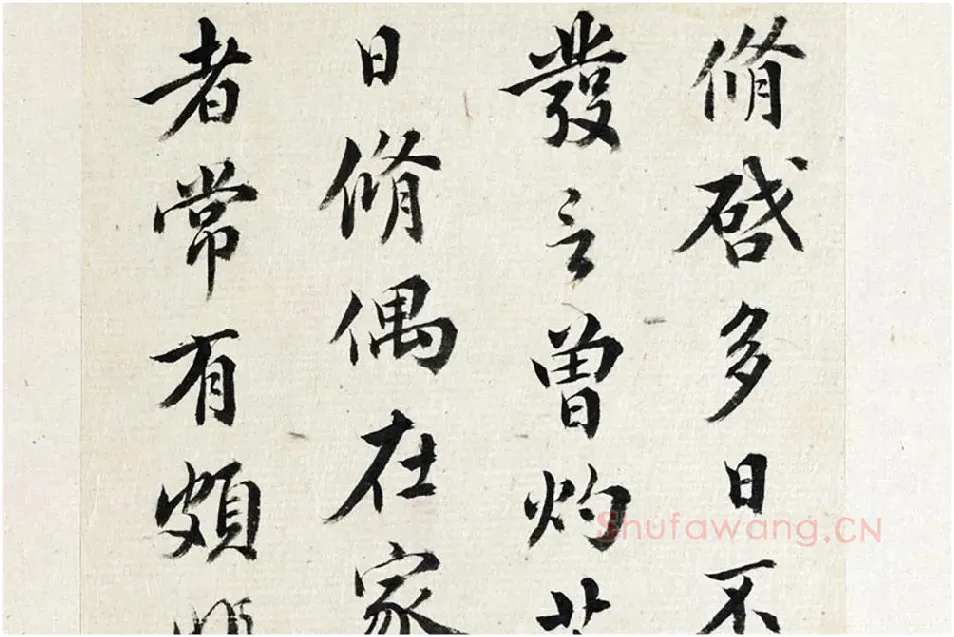 脩啓多日不
發言曾灼艾
日脩偶在家
者常有頗
Shufawang.CN